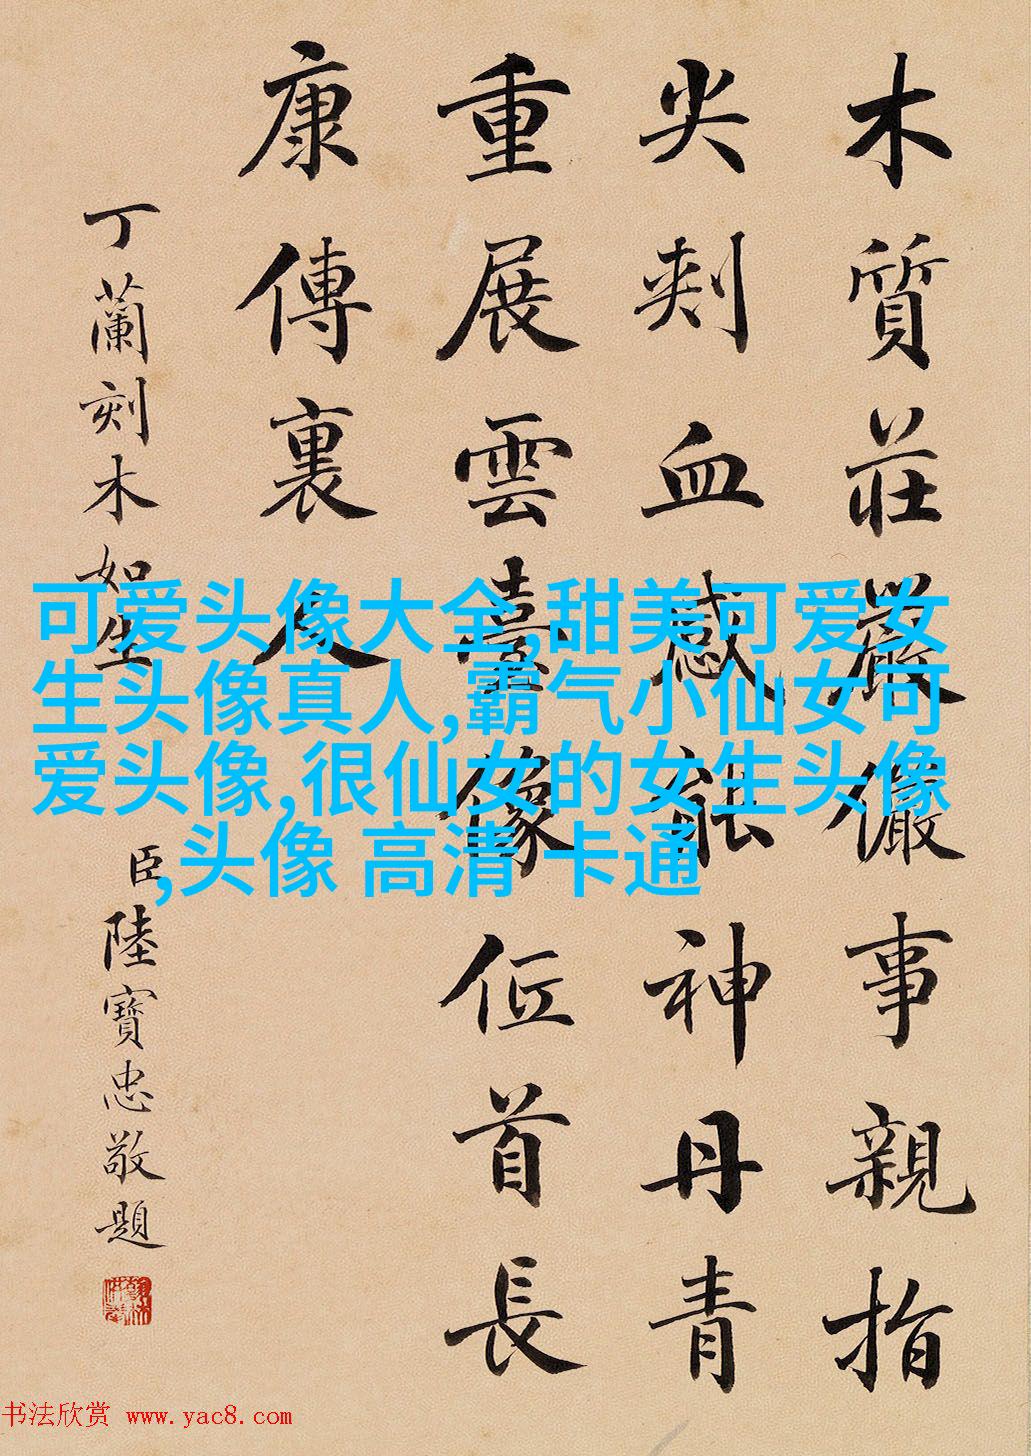 木質莊嚴儼事親指
尖刺血感能神丹青
重展雲臺像低首長
康傳裏人
丁蘭刻木如生
臣陸寶忠敬題
可爱头像大全,甜美可爱女
生头像真人,霸气小仙女可
爱头像,很仙女的女生头像
,头像 高清 卡通
书法欣赏 www.yac8.com